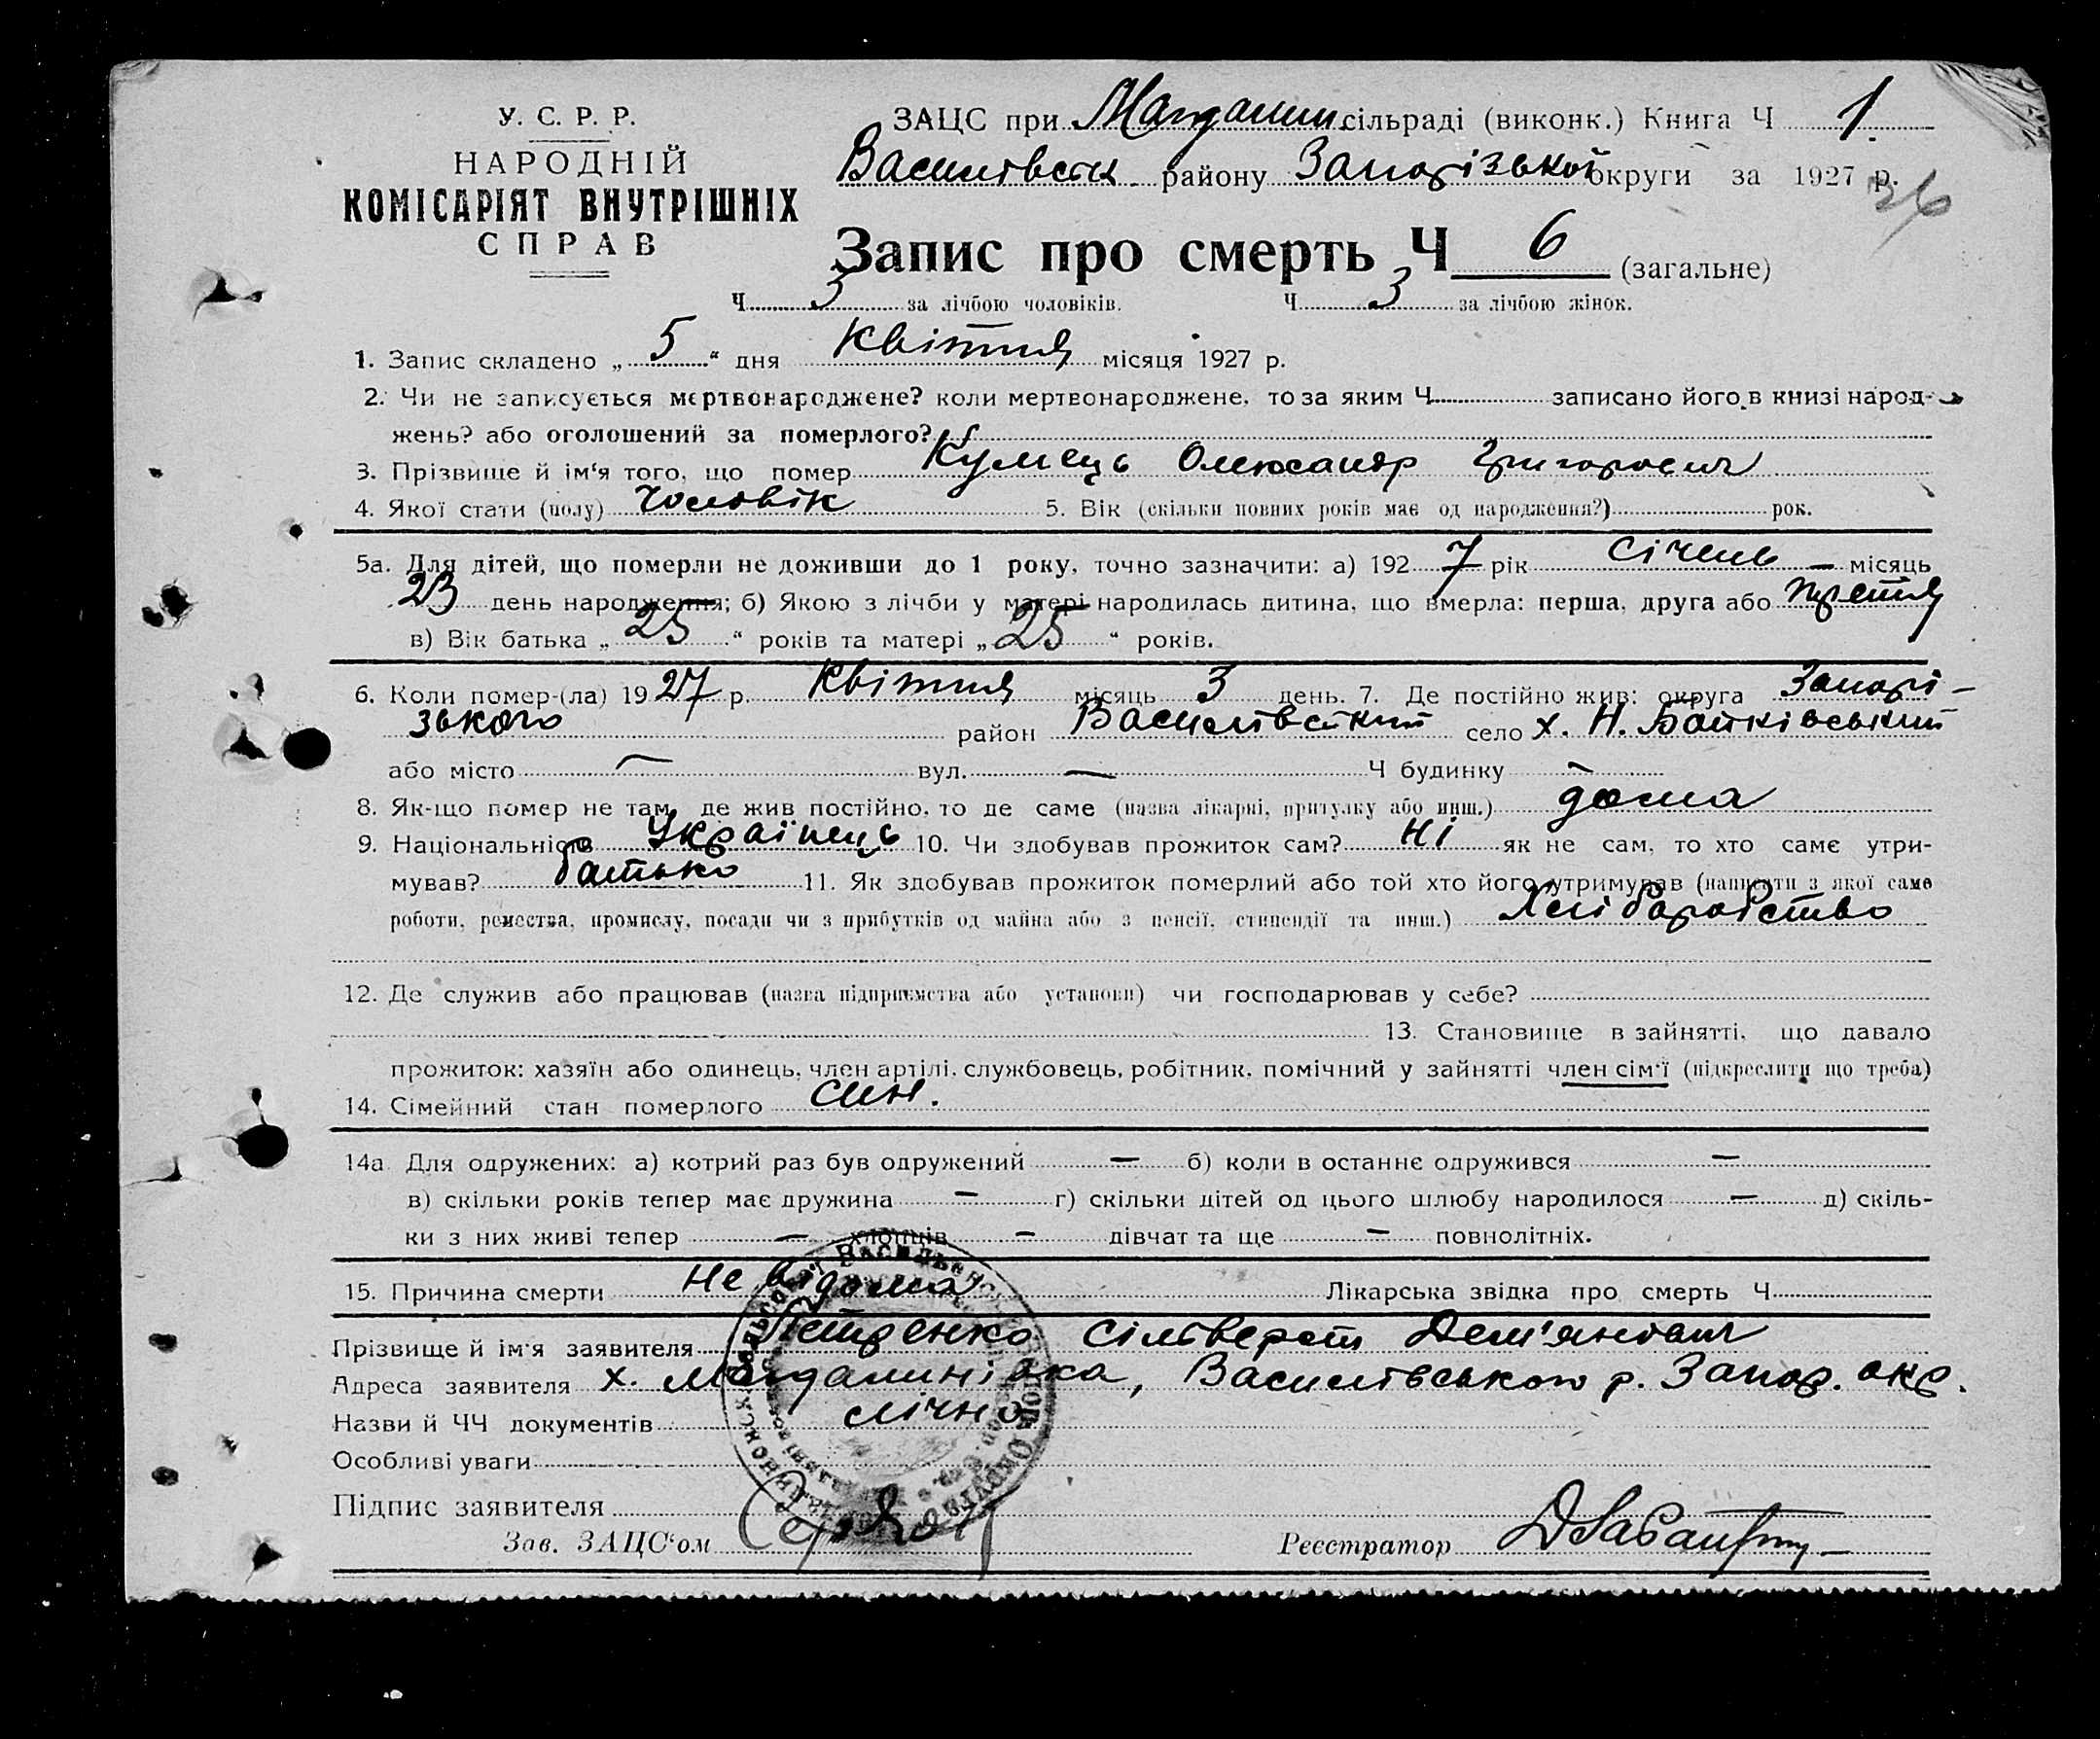 У. С. Р. Р.
НАРОДНІЙ
КОМІСАРІЯТ ВНУТРІШНІХ
СПРАВ
ЗАЦС при Магдалин. сільраді (виконк.) Книга Ч 1.
Василівськ. району Запорізької округи за 1927 р.
36
Запис про смерть Ч 6 (загальне)
Ч 3 за лічбою чоловіків. Ч 3 за лічбою жінок.
1. Запис складено „ 5 “ дня Квітня місяця 1927 р.
2. Чи не записується мертвонароджене? коли мертвонароджене, то за яким Ч записано його в книзі народ-
жень? або оголошений за померлого?
3. Прізвище й ім‘я того, що помер Кумець Олександр Григорович
4. Якої стати (полу) Чоловік 5. Вік (скільки повних років має од народження?) рок.
5а. Для дітей, що померли не доживши до 1 року, точно зазначити: а) 192 7 рік Січень місяць
23 день народження; б) Якою з лічби у матері народилась дитина, що вмерла: перша, друга або третя
в) Вік батька „ 25 “ років та матері „ 25 “ років.
6. Коли помер-(ла) 19 27 р. Квітня місяць 3 день. 7. Де постійно жив: округа Запорі-
зького район Василівський село х. Н. Байківський
або місто — вул. — Ч будинку —
8. Як-що помер не там, де жив постійно, то де саме (назва лікарні, притулку або инш.) дома
9. Національність Українець 10. Чи здобував прожиток сам? Ні як не сам, то хто саме утри-
мував? батько 11. Як здобував прожиток померлий або той хто його утримував (написати з якої саме
роботи, ремества, промислу, посади чи з прибутків од майна або з пенсії, стипендії та инш.) Хліборобство
12. Де служив або працював (назва підприємства або установи) чи господарював у себе?
13. Становище в зайнятті, що давало
прожиток: хазяїн або одинець, член артілі, службовець, робітник, помічний у зайнятті член сім‘ї (підкреслити що треба)
14. Сімейний стан померлого син.
14а Для одружених: а) котрий раз був одружений — б) коли в останнє одружився —
в) скільки років тепер має дружина — г) скільки дітей од цього шлюбу народилося — д) скіль-
ки з них живі тепер — хлопців — дівчат та ще — повнолітніх.
15. Причина смерти Не відома Лікарська звідка про смерть Ч
Прізвище й ім‘я заявителя Петренко Сільверст Дем'янович
Адреса заявителя х. Магдалинівка, Василівського р. Запор. окр.
Назви й ЧЧ документів лічно
Особливі уваги
Підпис заявителя
Зав. ЗАЦС‘ом
Реєстратор